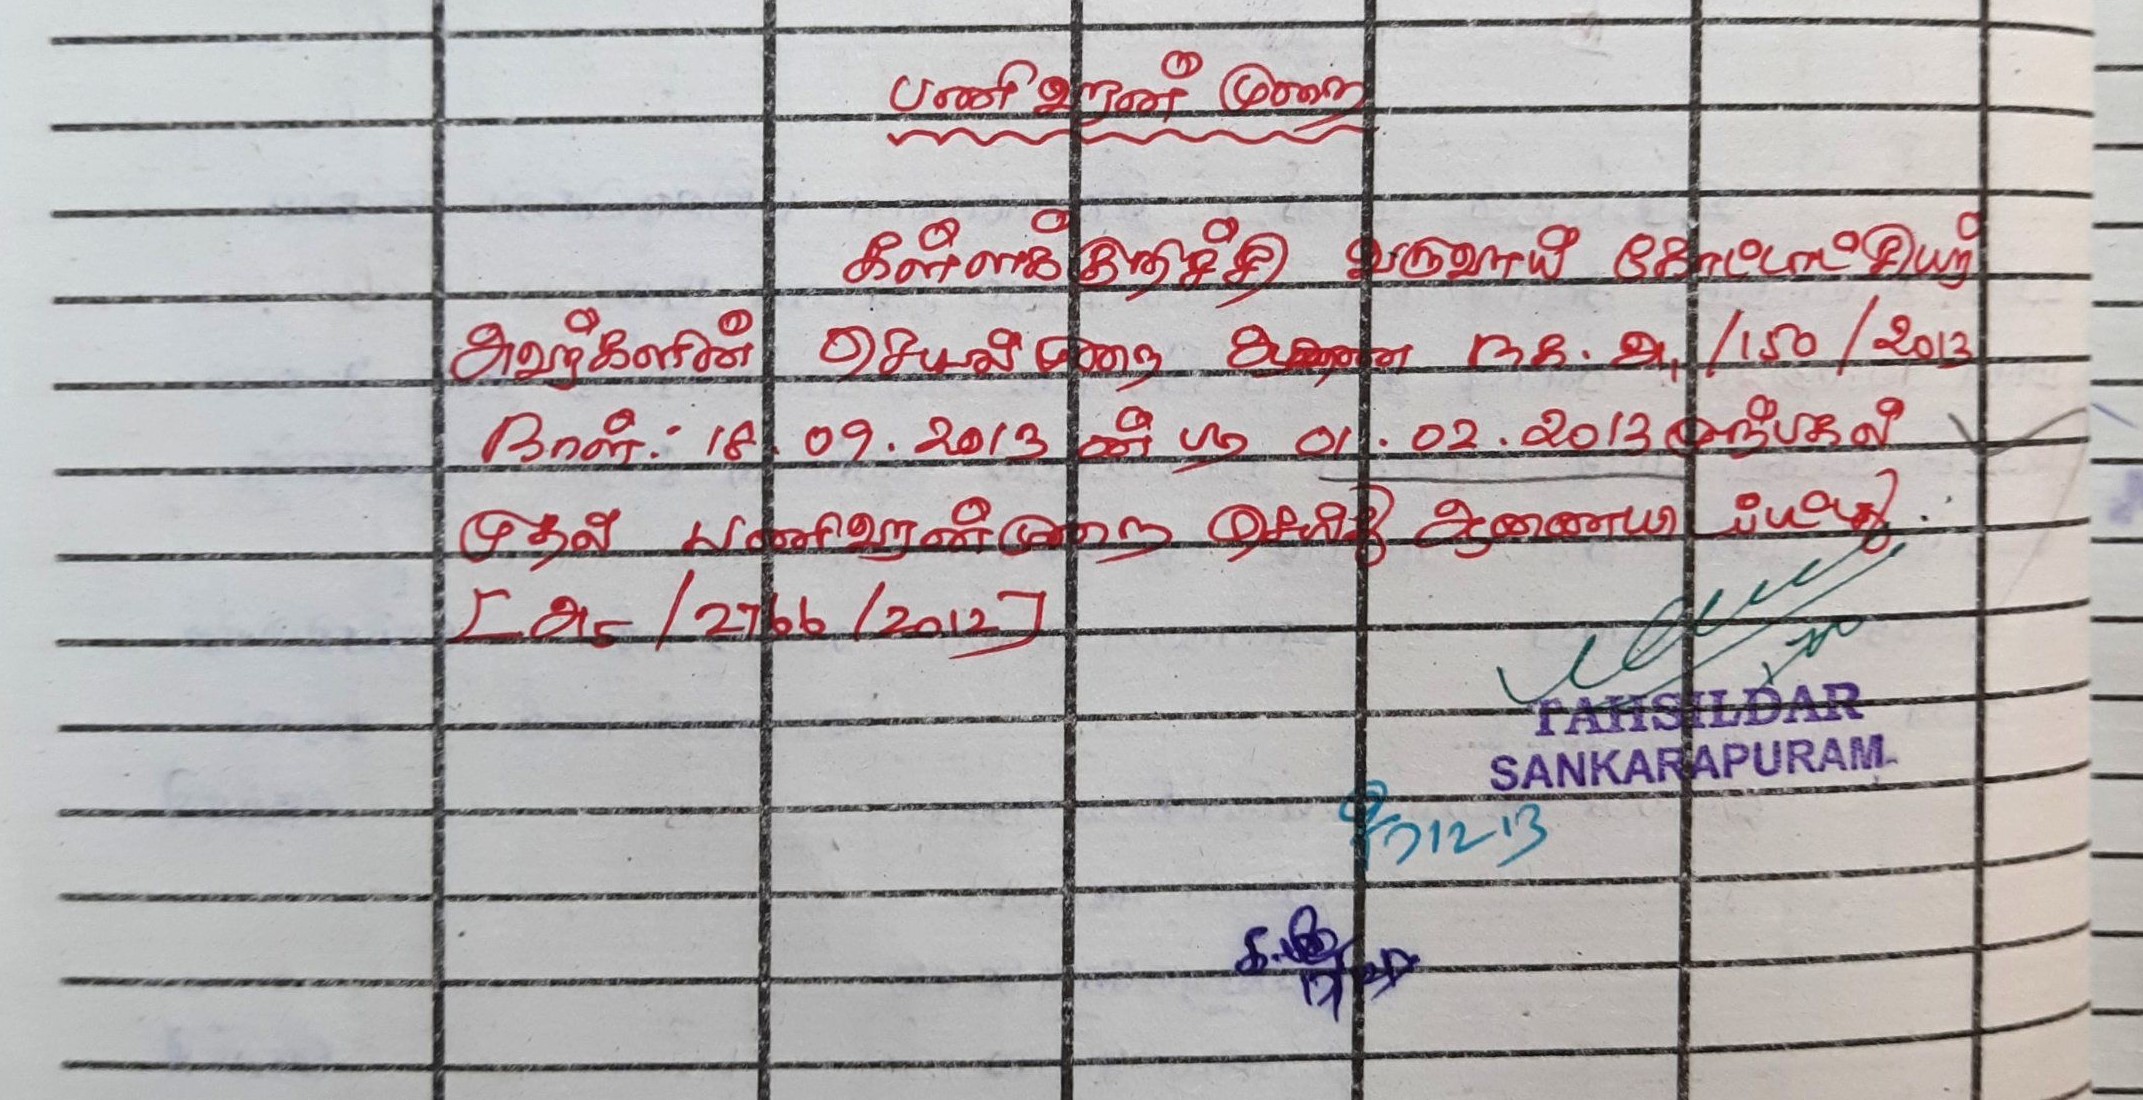 பணிவரன் முறை
கள்ளக்குறிச்சி வருவாய் கோட்டாட்சியர்
அவர்களின் செயல்முறை ஆணை ந.க. அ1/150/2013
நாள்: 18.09.2013 ன் படி 01.02.2013 முற்பகல்
முதல் பணிவரன்முறை செய்து ஆணையிடப்பட்டது.
[அ5/2766/2012]
TAHSILDAR
SANKARAPURAM